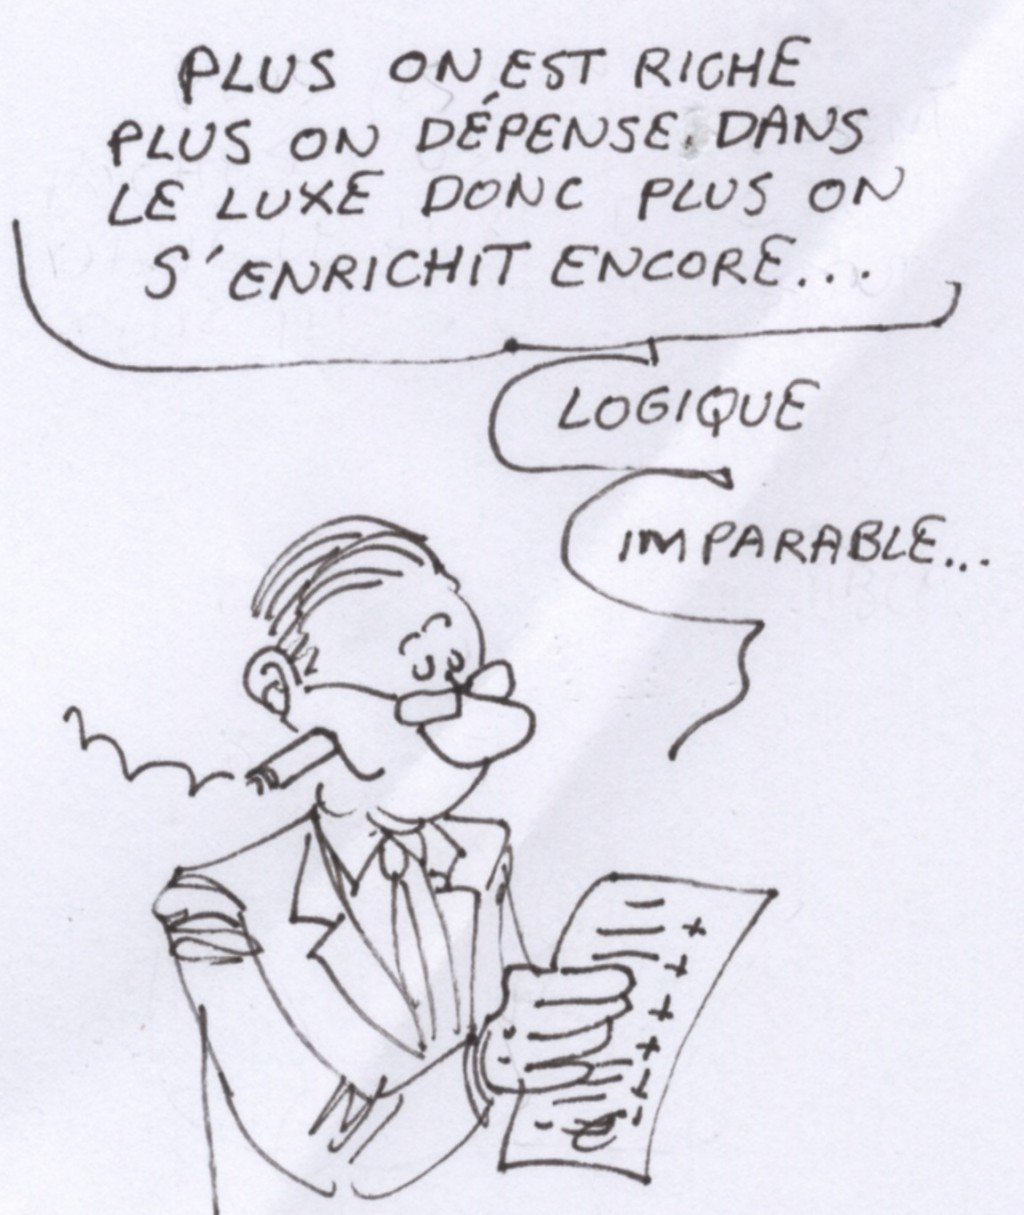 PLUS ON EST RICHE
PLUS ON DÉPENSE DANS
LE LUXE DONC PLUS ON
S'ENRICHIT ENCORE...
LOGIQUE
IMPARABLE...